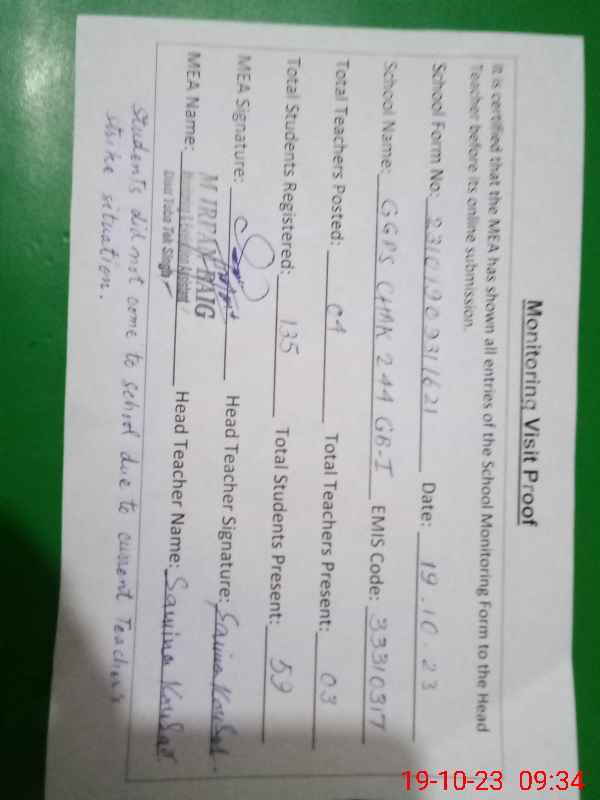 Monitoring Visit Proof
It is certified that the MEA has shown all entries of the School Monitoring Form to the Head
Teacher before its online submission.
School Form No: 2310190931621 Date: 19.10.23
School Name: GGPS CHAK 244 GB-I EMIS Code: 33310317
Total Teachers Posted: 04 Total Teachers Present: 03
Total Students Registered: 135 Total Students Present: 59
MEA Signature: Head Teacher Signature:
MEA Name: M IRFAN BAIG Head Teacher Name: Samina Kousar
Monitoring & Evaluation Assistant
Distt Toba Tek Singh
Students did not come to school due to current Teacher's
strike situation.
19-10-23 09:34